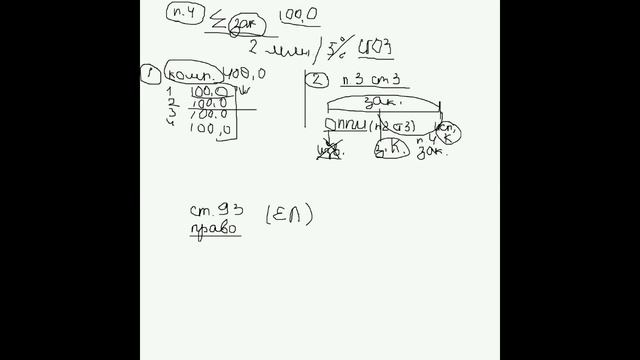 п.4 Σ зак 100,0
2 млн/5% СГОЗ
1 комп. 400,0
1 100,0
2 100,0
3 100,0
4 100,0
2 п.3 ст 3
зак.
(п2 ст3)
з.К. п.4 зак.
ст.93 (ЕП)
право